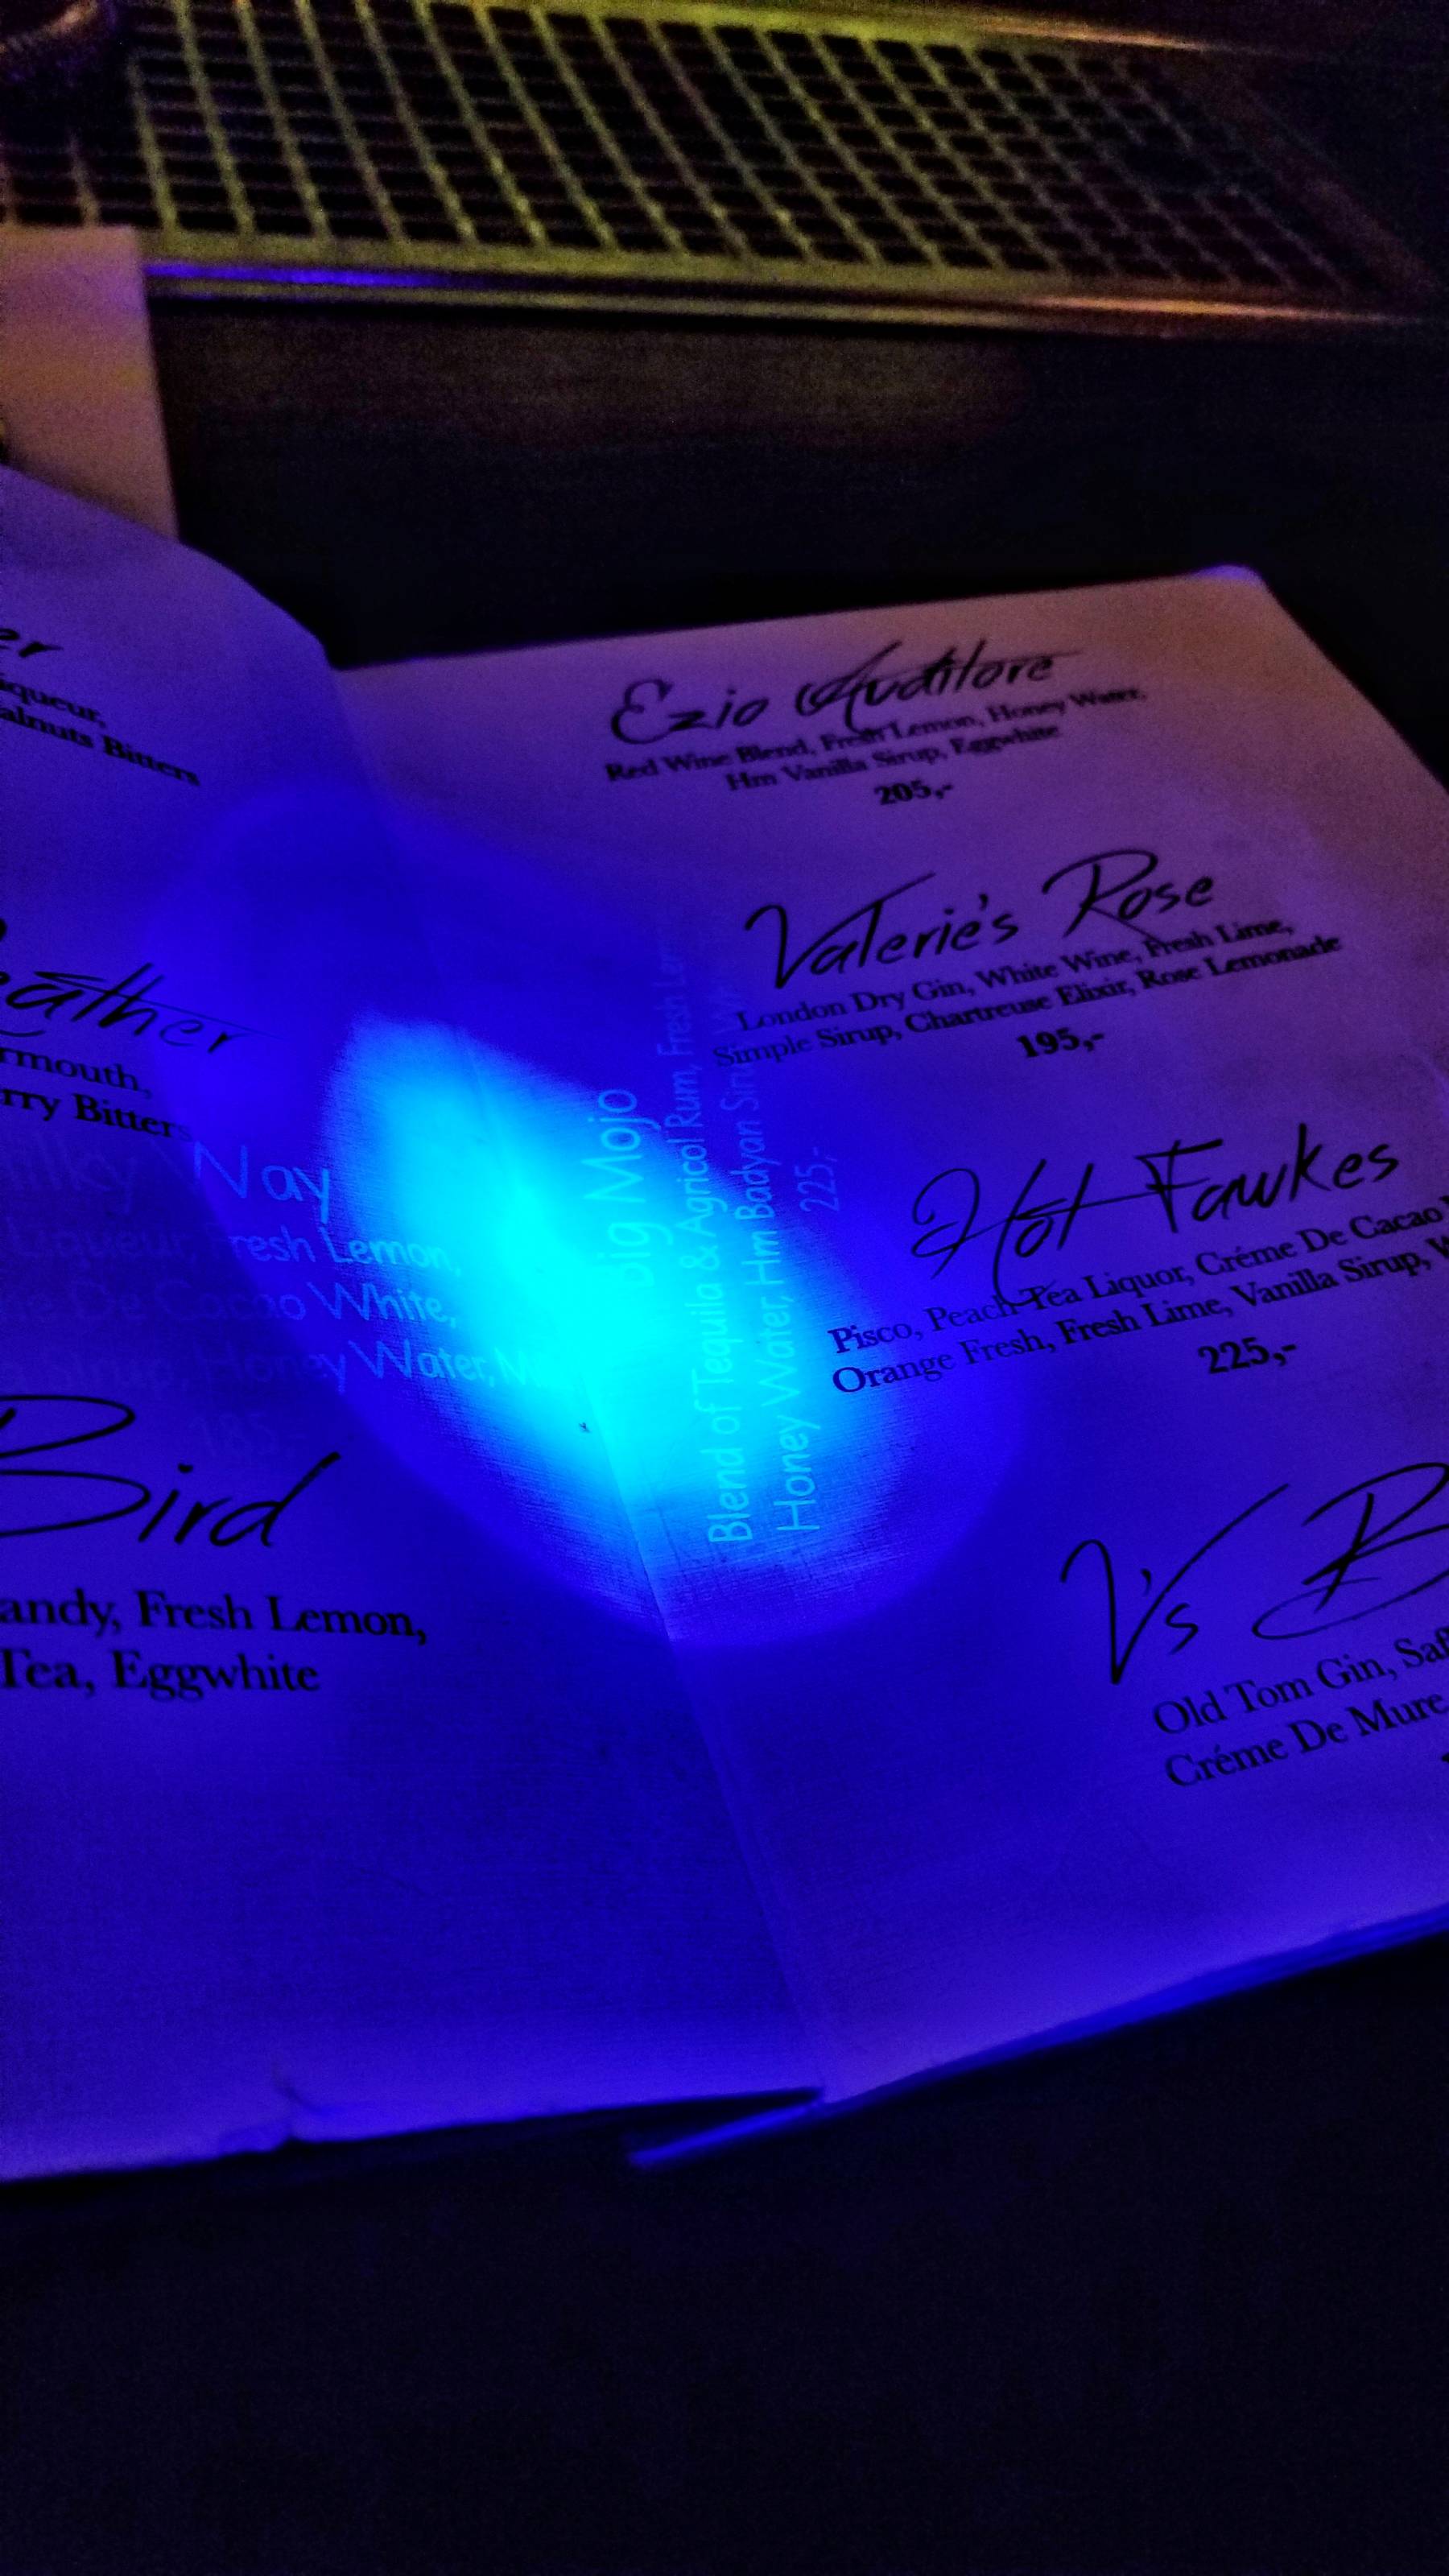 er
iqueur,
alnuts Bitters
eather
rmouth,
rry Bitters
Milky Way
Liqueur, Fresh Lemon,
De Cacao White,
Honey Water,
185,-
Bird
andy, Fresh Lemon,
Tea, Eggwhite
Big Mojo
Blend of Tequila & Agricol Rum, Fresh Le
Honey Water, Hm Badyan Sirup,
225,-
Ezio Auditore
Red Wine Blend, Fresh Lemon, Honey Water,
Hm Vanilla Sirup, Eggwhite
205,-
Valerie's Rose
London Dry Gin, White Wine, Fresh Lime,
Simple Sirup, Chartreuse Elixir, Rose Lemonade
195,-
Hot Fawkes
Pisco, Peach Tea Liquor, Créme De Cacao
Orange Fresh, Fresh Lime, Vanilla Sirup, W
225,-
V's B
Old Tom Gin, Saf
Créme De Mure